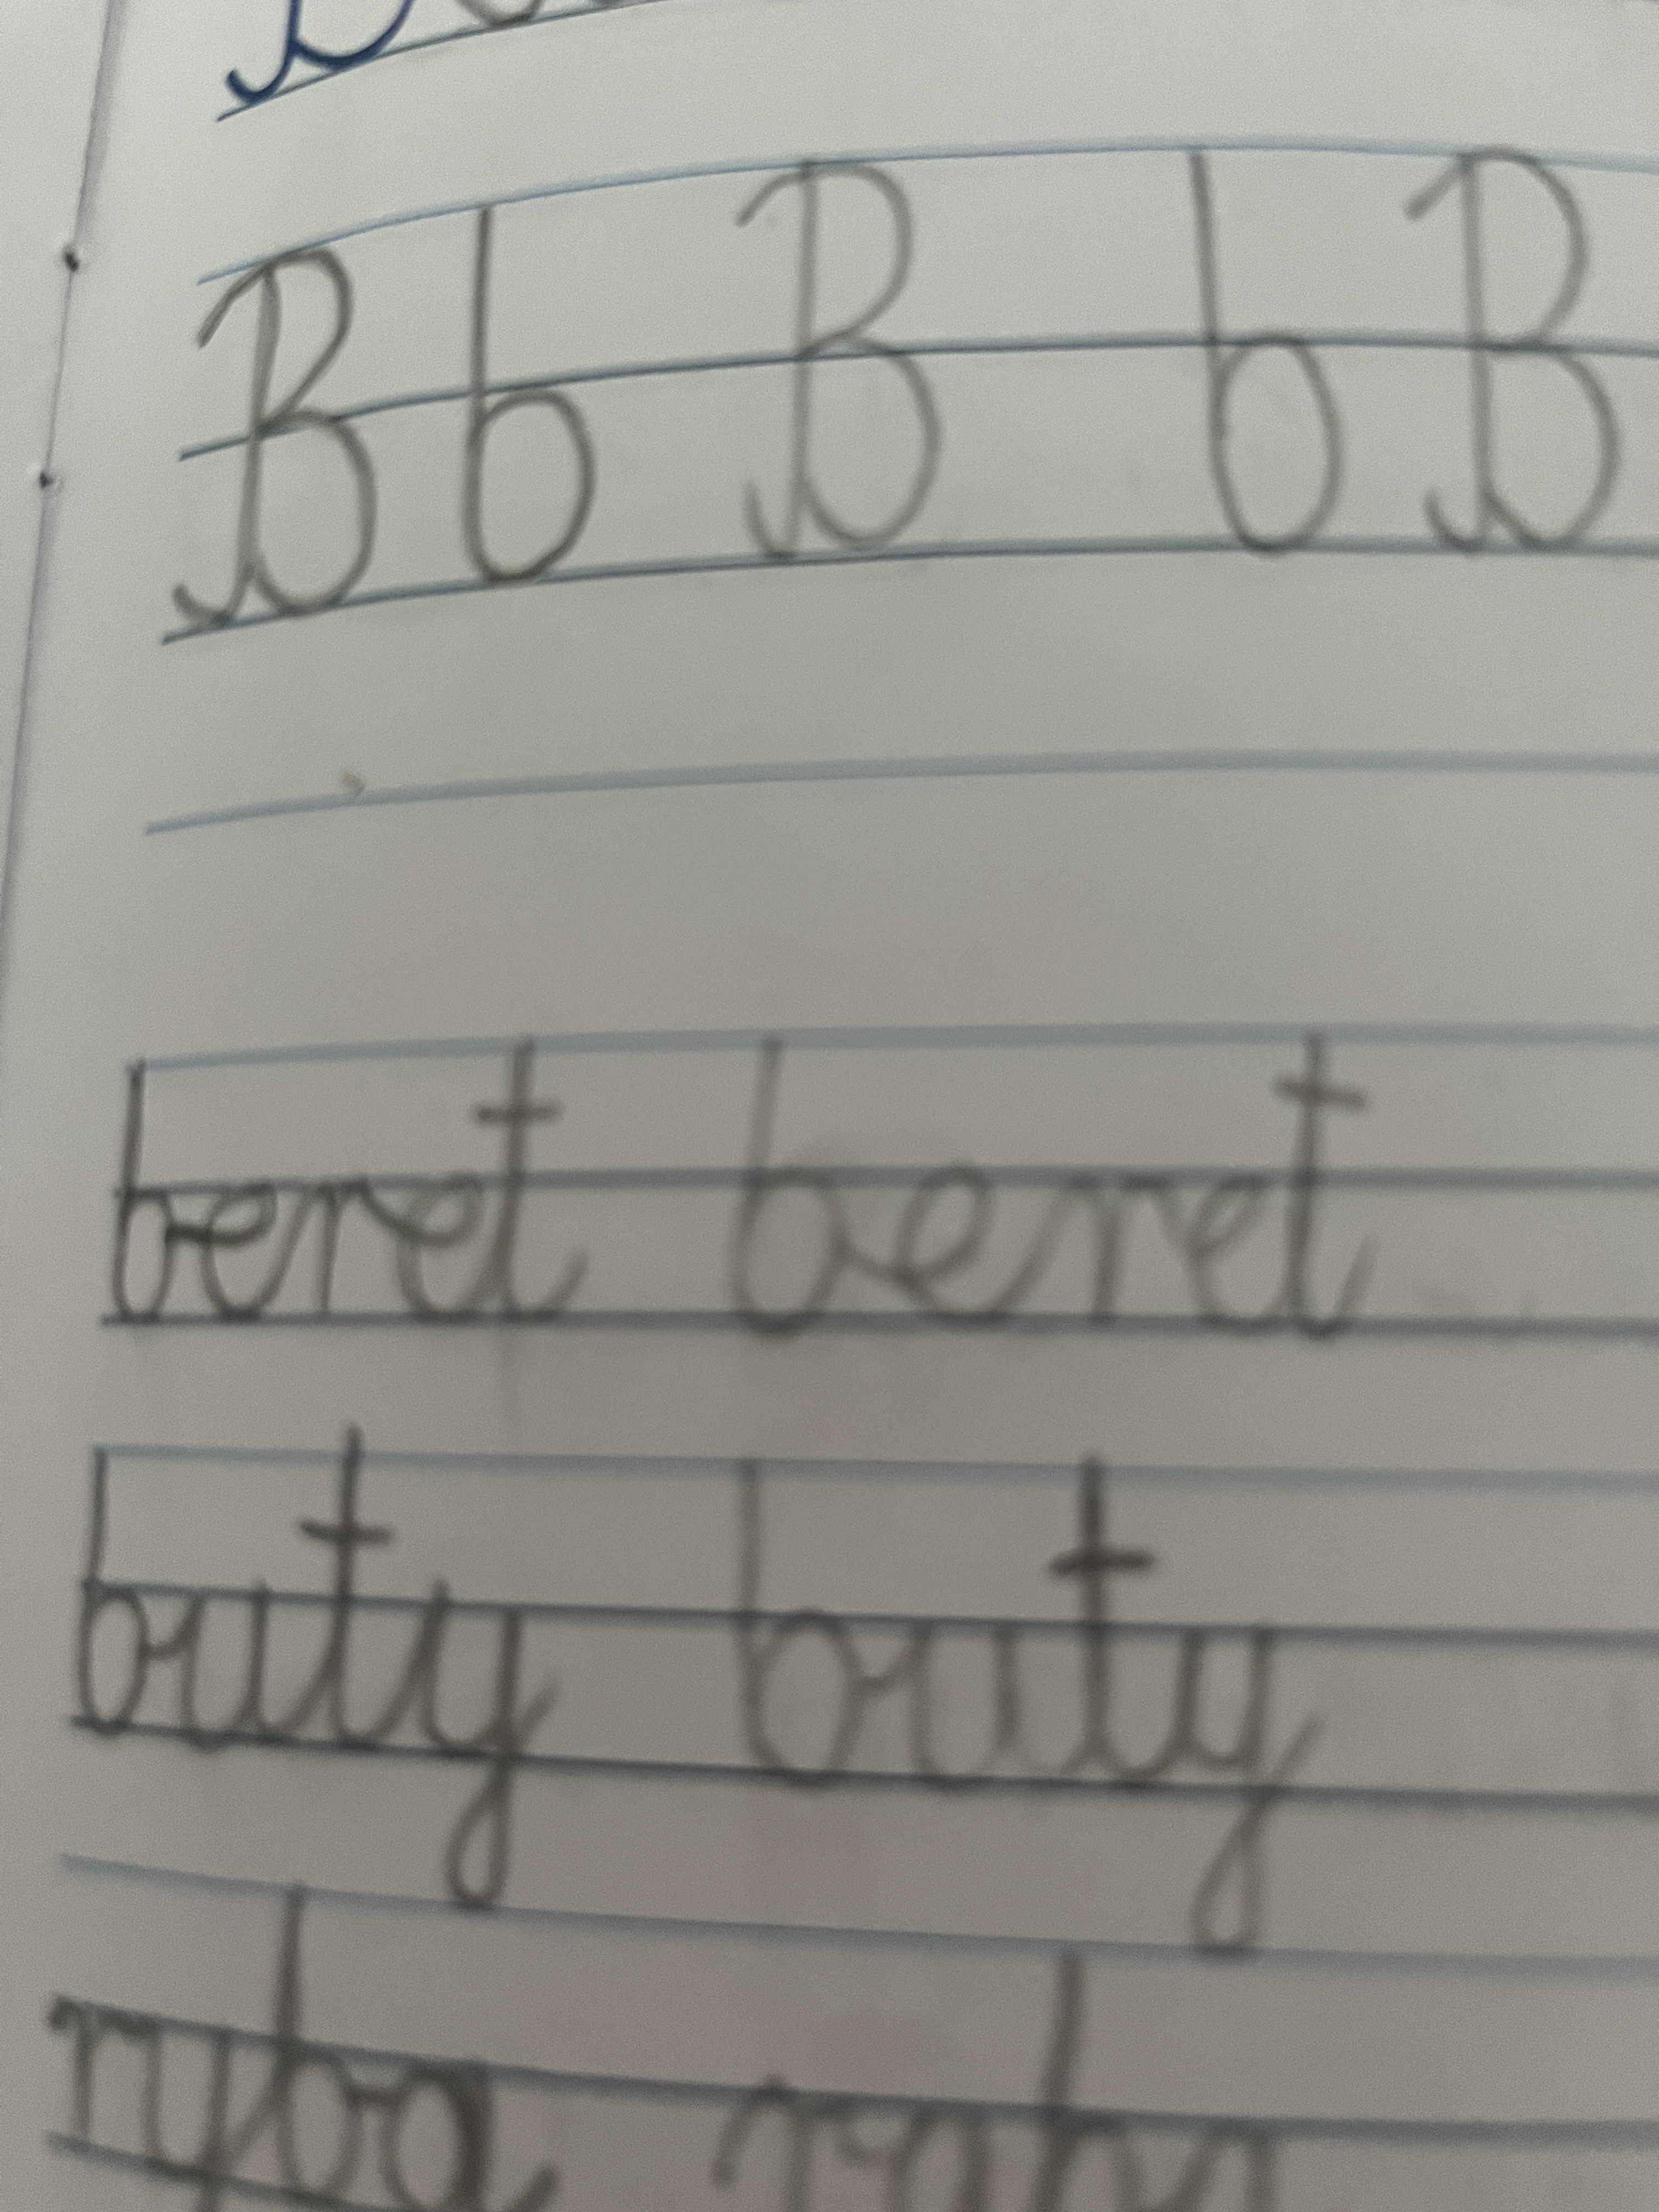 B b B b B
beret beret
buty buty
ryba